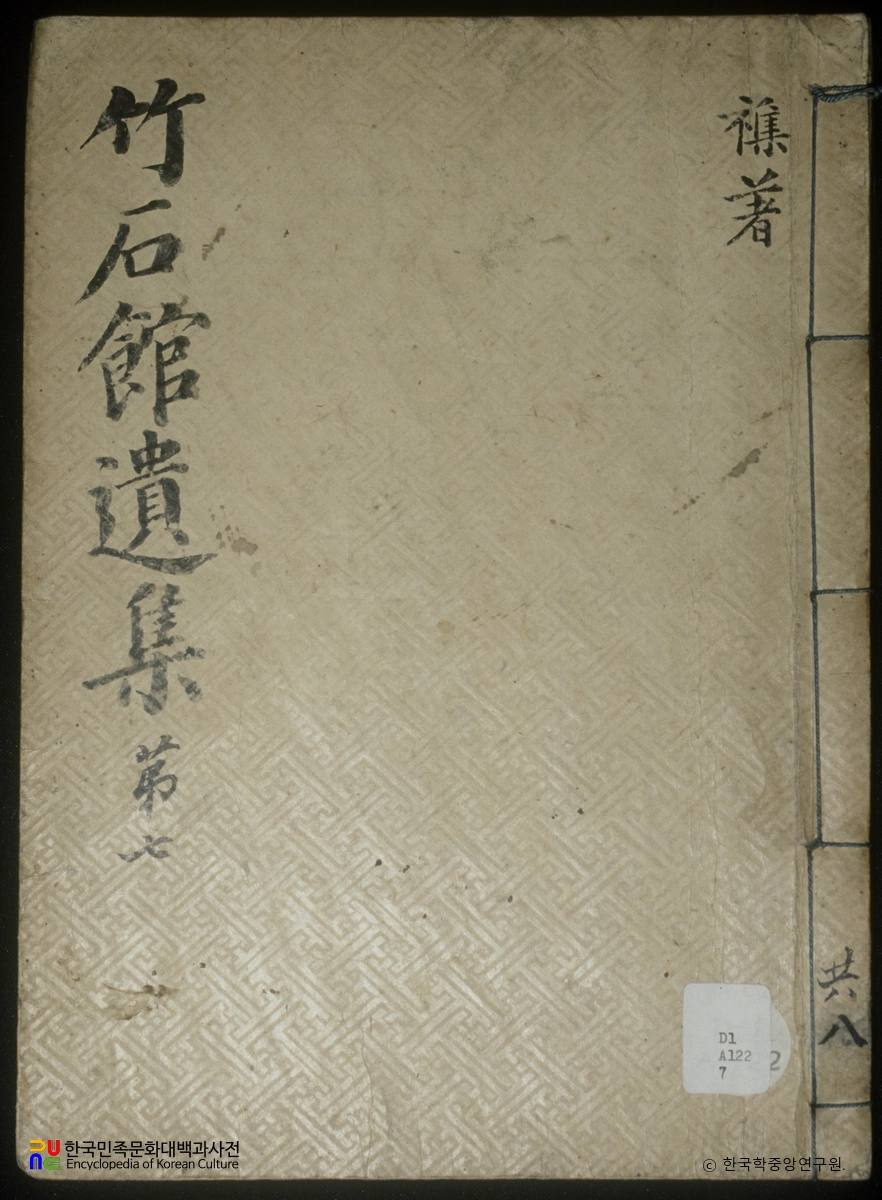 襍著
竹石館遺集 第七
共八
D1
A122
7
2
한국민족문화대백과사전
Encyclopedia of Korean Culture
© 한국학중앙연구원.